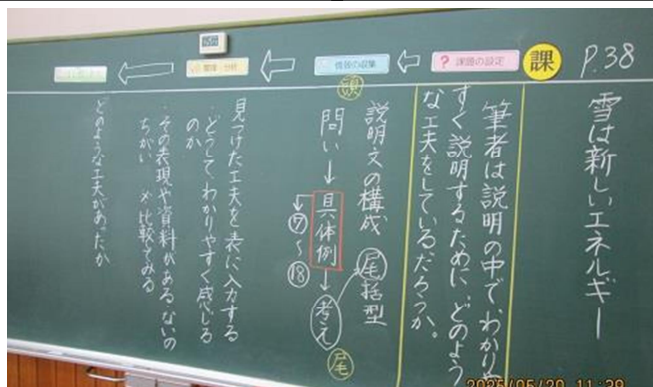 P.38
雪は新しいエネルギー
課
課題の設定
情報の収集
整理・分析
筆者は説明の中で、わかりや
すく説明するために、どのよう
な工夫をしているだろうか。
頭
説明文の構成 尾括型
問い→具体例→考え
⑦~⑱
尾
見つけた工夫を表に入力する
・どうして、わかりやすく感じる
のか
・その表現や資料があるないの
ちがい ※比較してみる
どのような工夫があったか
2025/05/20 11:29